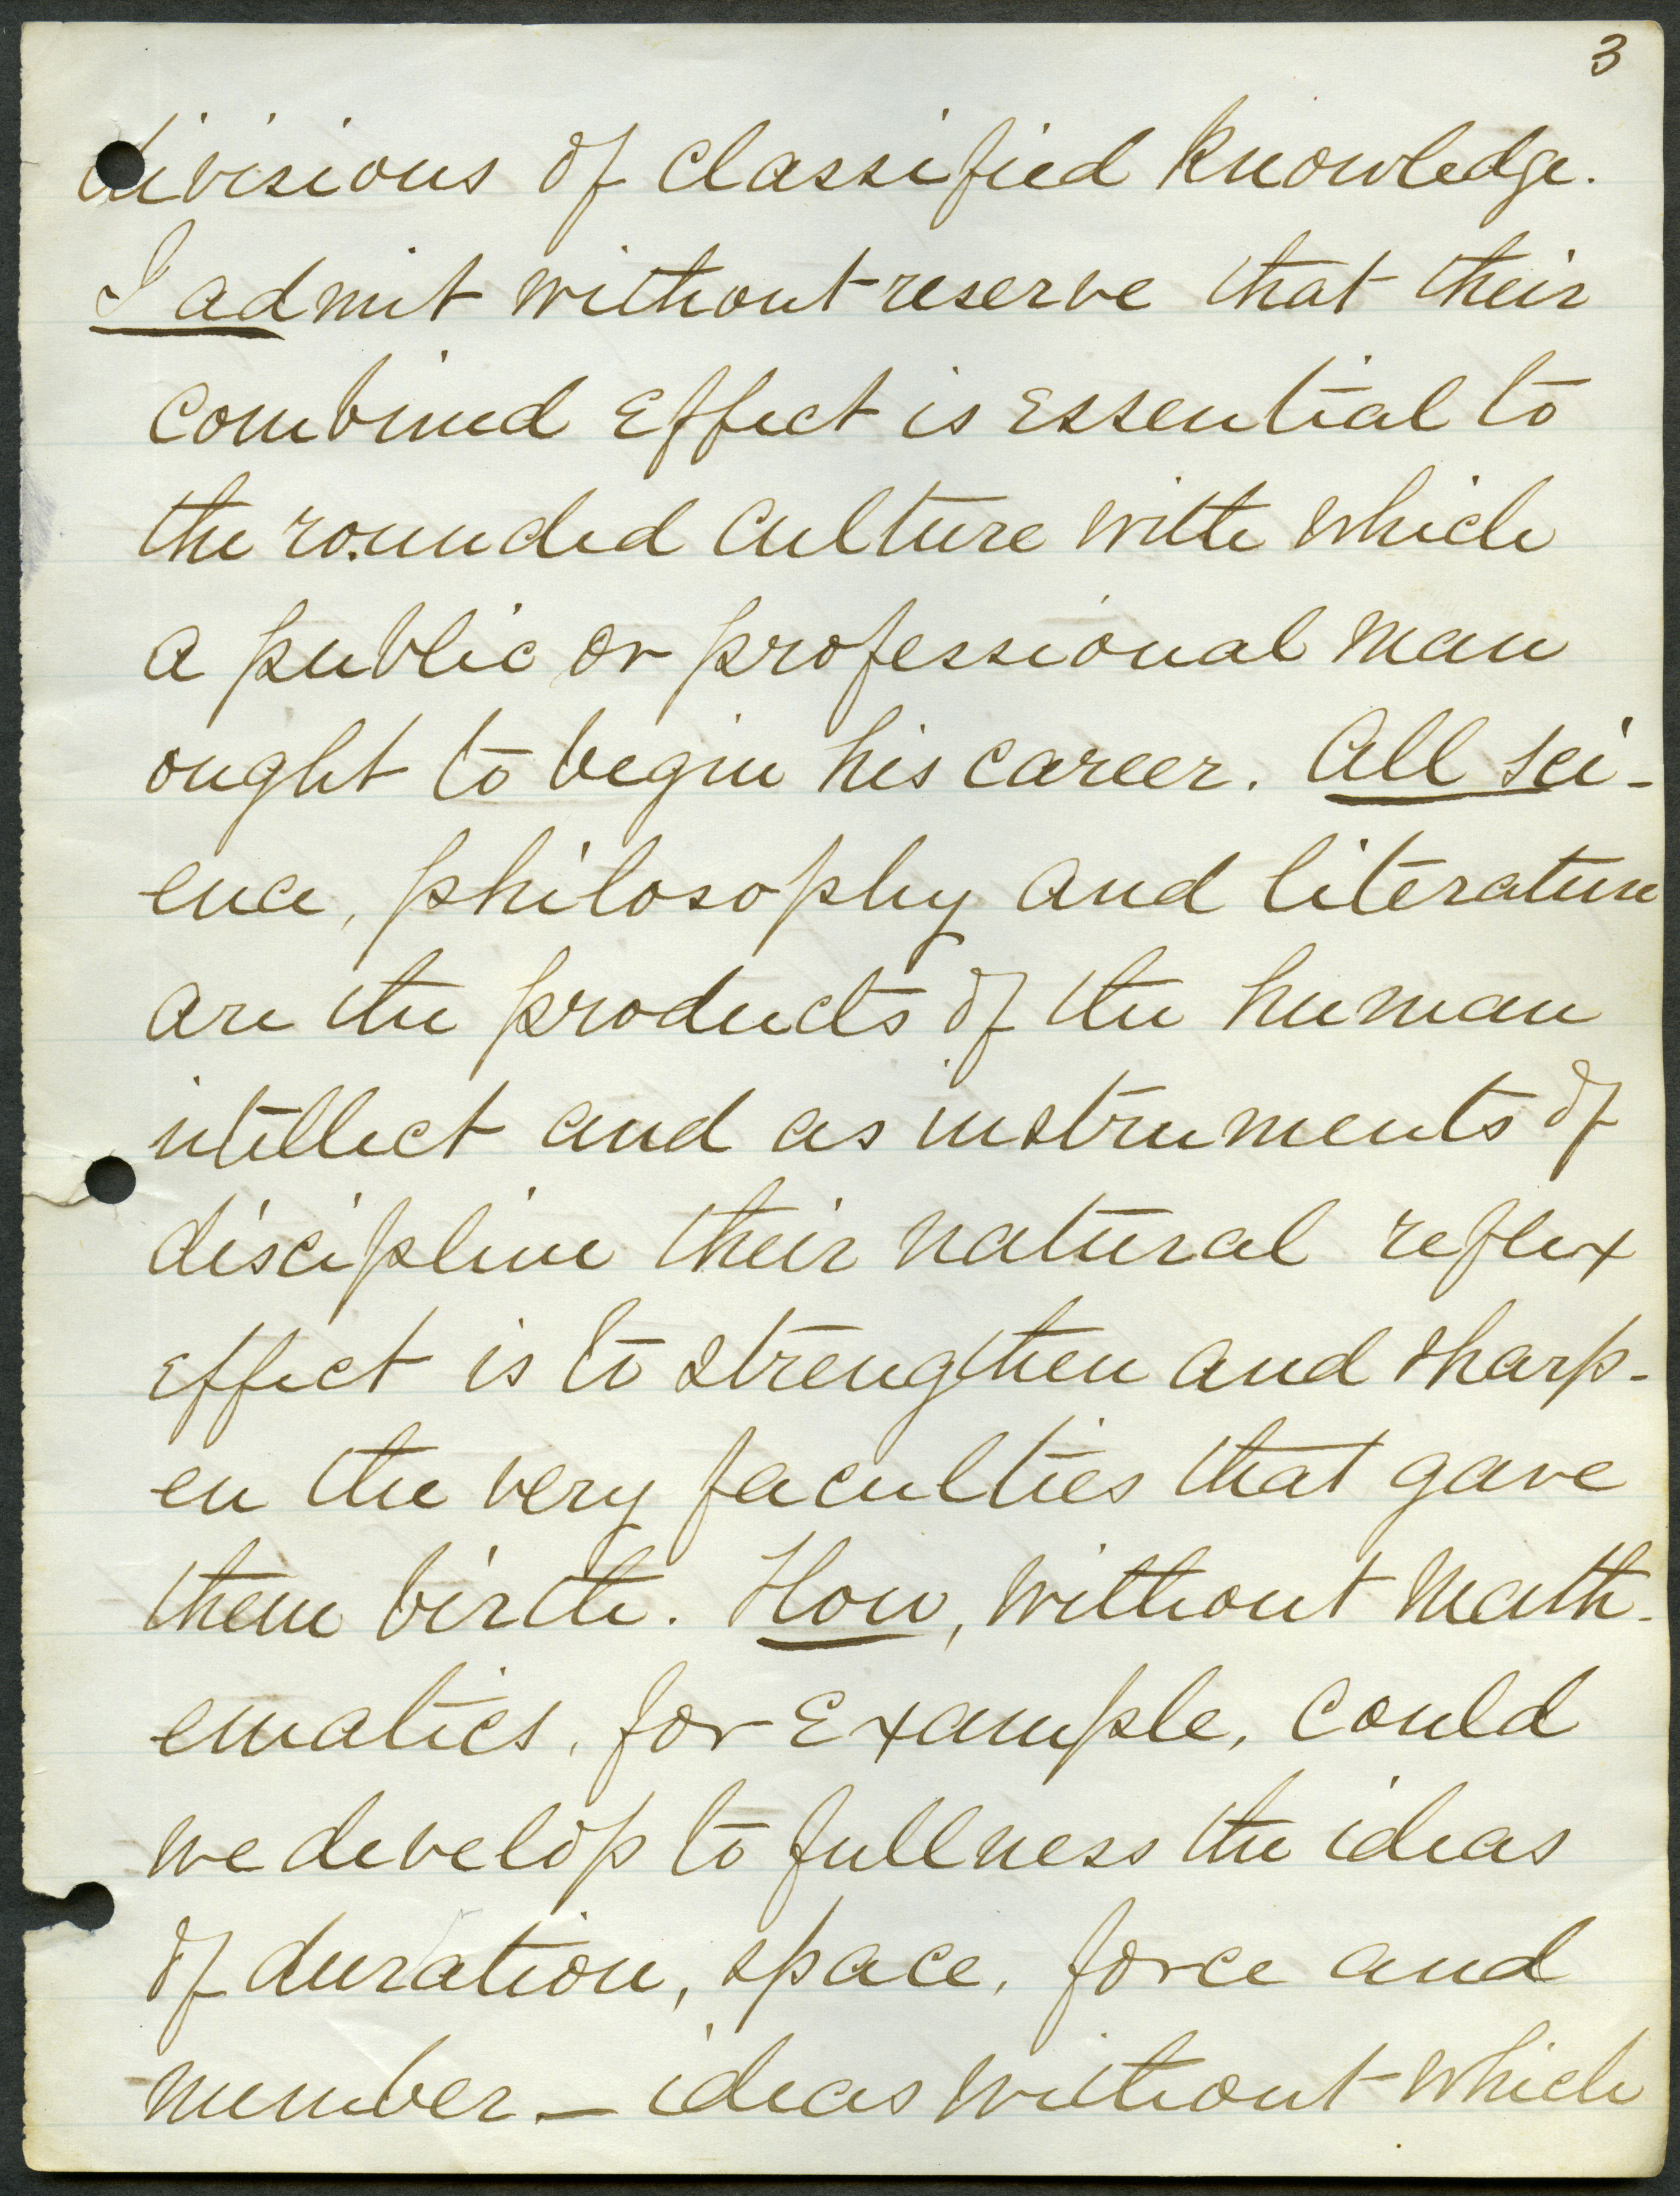 3
divisions of classified knowledge.
I admit without reserve that their
combined effect is essential to
the rounded culture with which
a public or professional man
ought to begin his career. All sci-
ence, philosophy and literature
are the products of the human
intellect and as instruments of
discipline their natural reflex
effect is to strengthen and sharp-
en the very faculties that gave
them birth. How, without math-
ematics, for example, could
we develop to fullness the ideas
of duration, space, force and
number — ideas without which